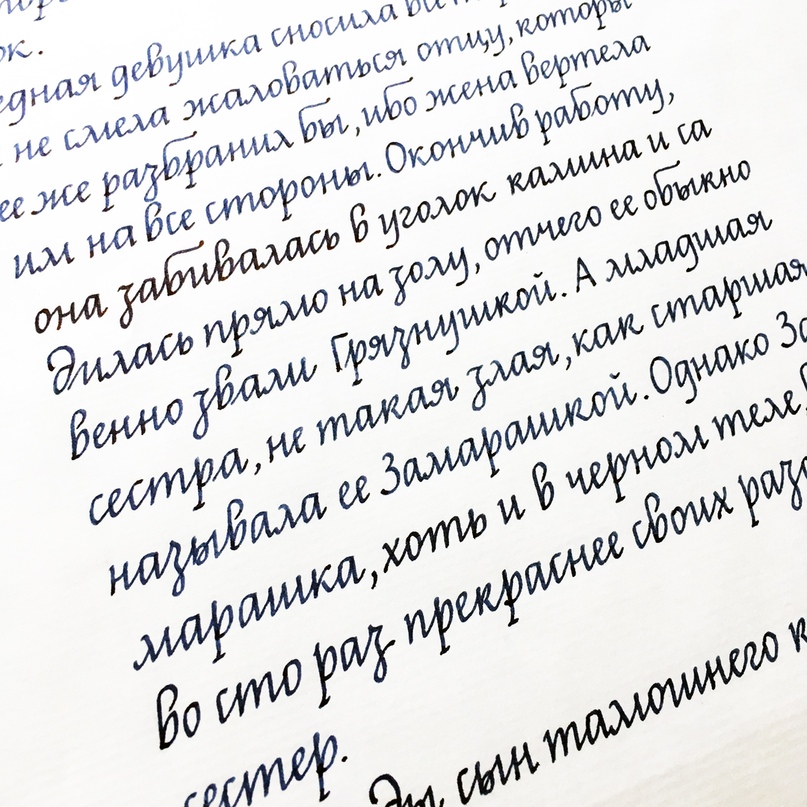 ок.
едная девушка сносила
не смела жаловаться отцу, которы
ее же разбранил бы, ибо жена вертела
им на все стороны. Окончив работу,
она забивалась в уголок камина и са
дилась прямо на золу, отчего ее обыкно
венно звали Грязнушкой. А младшая
сестра, не такая злая, как старшая
называла ее Замарашкой. Однако За
марашка, хоть и в черном теле,
во сто раз прекраснее своих раз
сестер.
ды, сын тамошнего к